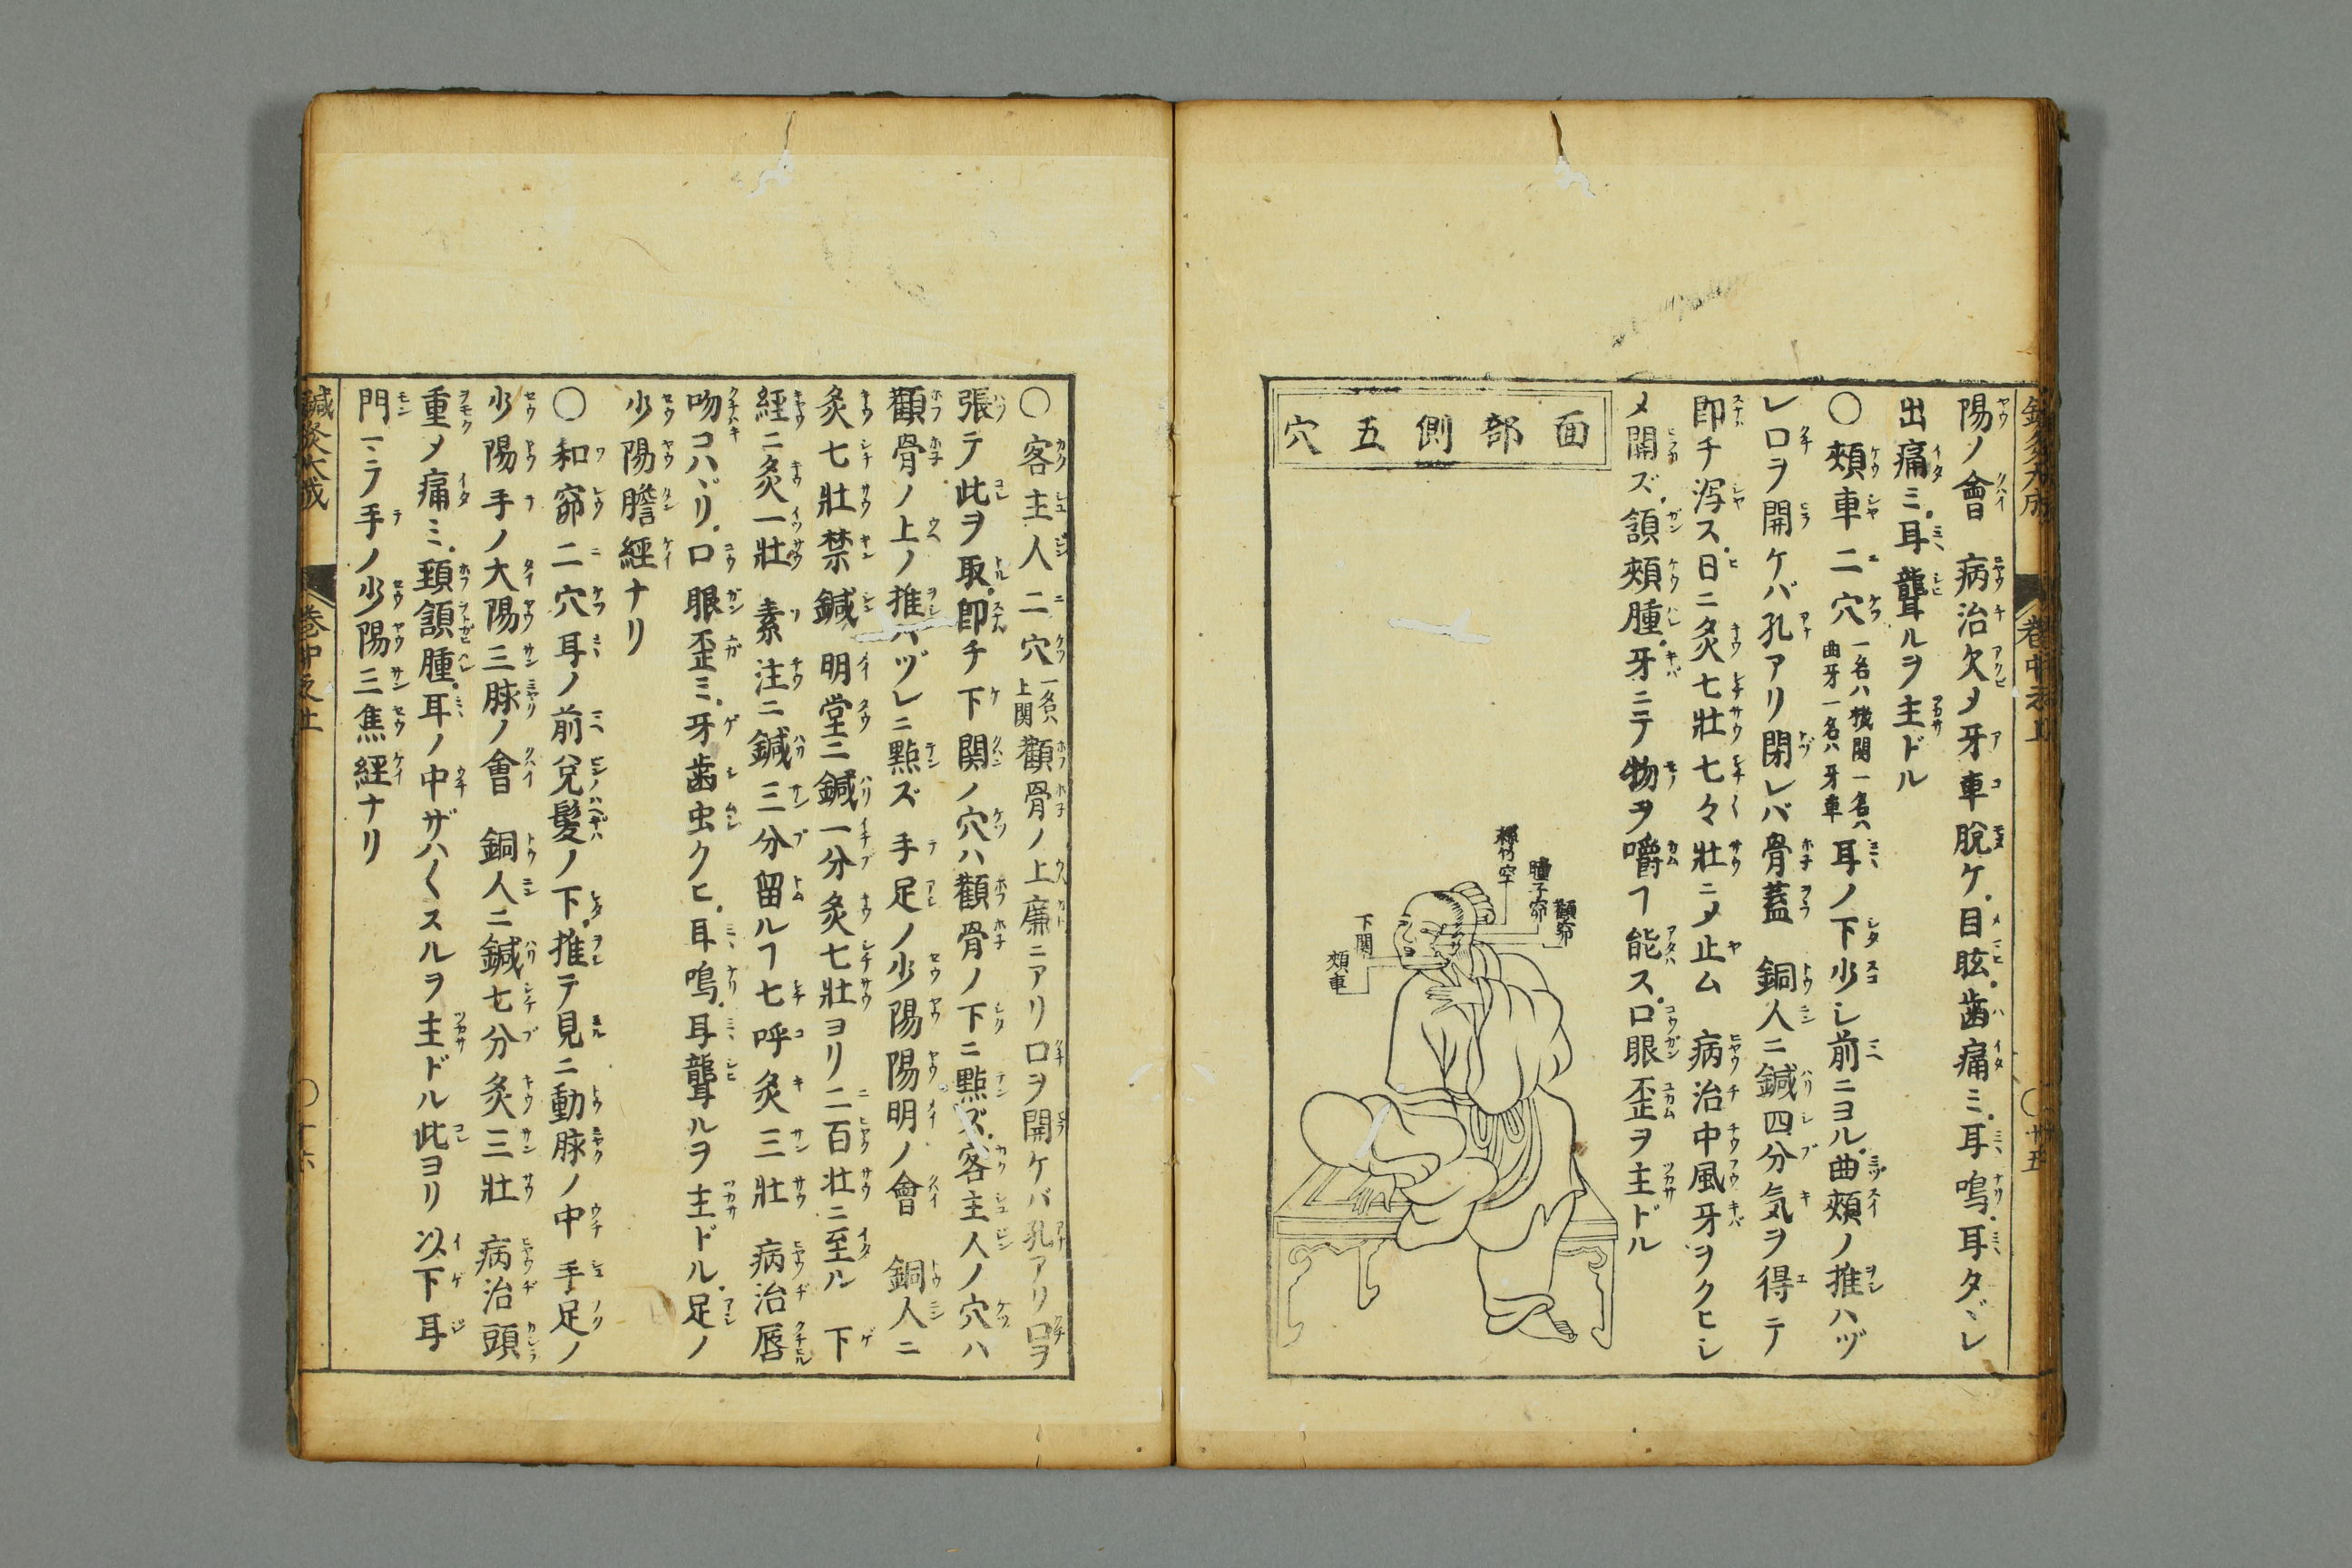 陽ノ會 病治欠メ牙車脫ケ目眩齒痛ミ耳鳴耳タヾレ
出痛ミ耳聾ルヲ主ドル
〇頰車二穴 一名ハ機関一名ハ曲牙一名ハ牙車 耳ノ下少シ前ニヨル曲頰ノ推ハヅ
レ口ヲ開ケバ孔アリ閉レバ骨蓋 銅人ニ鍼四分気ヲ得テ
即チ泻ス日ニ灸七壯七々壯ニメ止ム 病治中風牙ヲクヒシ
メ開ズ頷頰腫牙ニテ物ヲ嚼ヿ能ス口眼歪ヲ主ドル
面部側五穴
瞳子窌
顴窌
下関
頰車
〇客主人二穴 一名ハ上関 顴骨ノ上廉ニアリ口ヲ開ケバ孔アリ口ヲ
張テ此ヲ取即チ下関ノ穴ハ顴骨ノ下ニ點ズ客主人ノ穴ハ
顴骨ノ上ノ推ハヅレニ點ズ 手足ノ少陽陽明ノ會 銅人ニ
灸七壯禁鍼 明堂ニ鍼一分灸七壯ヨリ二百壯ニ至ル 下
經ニ灸一壯 素注ニ鍼三分留ルヿ七呼灸三壯 病治唇
吻コハヾリ口眼歪ミ牙歯虫クヒ耳鳴耳聾ルヲ主ドル足ノ
少陽膽經ナリ
〇和窌二穴耳ノ前兌髮ノ下推テ見ニ動脉ノ中 手足ノ
少陽手ノ大陽三脉ノ會 銅人ニ鍼七分灸三壯 病治頭
重メ痛ミ頸頷腫耳ノ中ザハ〱スルヲ主ドル此ヨリ以下耳
門マテ手ノ少陽三焦經ナリ
鍼灸大成
卷中之上